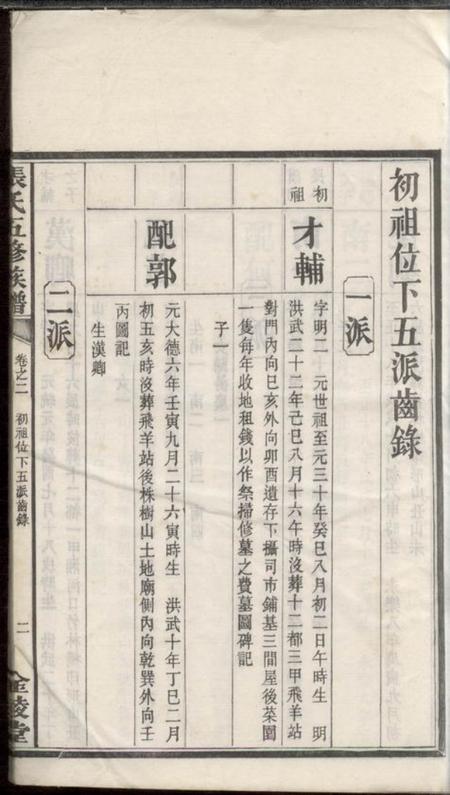 初祖位下五派齒錄
一派
初祖
才輔
字明二 元世祖至元三十年癸巳八月初二日午時生 明
洪武二十二年己巳八月十六午時沒葬十二都三甲飛羊站
對門內向巳亥外向卯酉遺存下攝司市鋪基三間屋後菜園
一隻每年收地租錢以作祭掃修墓之費墓圖碑記
子一
配郭
元大德六年壬寅九月二十六寅時生 洪武十年丁巳二月
初五亥時沒葬飛羊站後株樹山土地廟側內向乾巽外向壬
丙圖記
生漢卿
二派
張氏五修族譜
卷之二 初祖位下五派齒錄
二
金陵堂